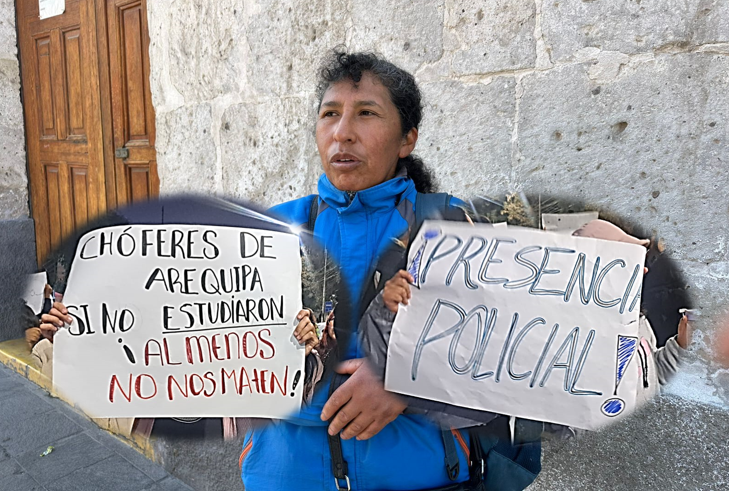 CHÓFERES DE
AREQUIPA
SI NO ESTUDIARON
¡AL MENOS
NO NOS MATEN!
¡PRESENCIA
POLICIAL!